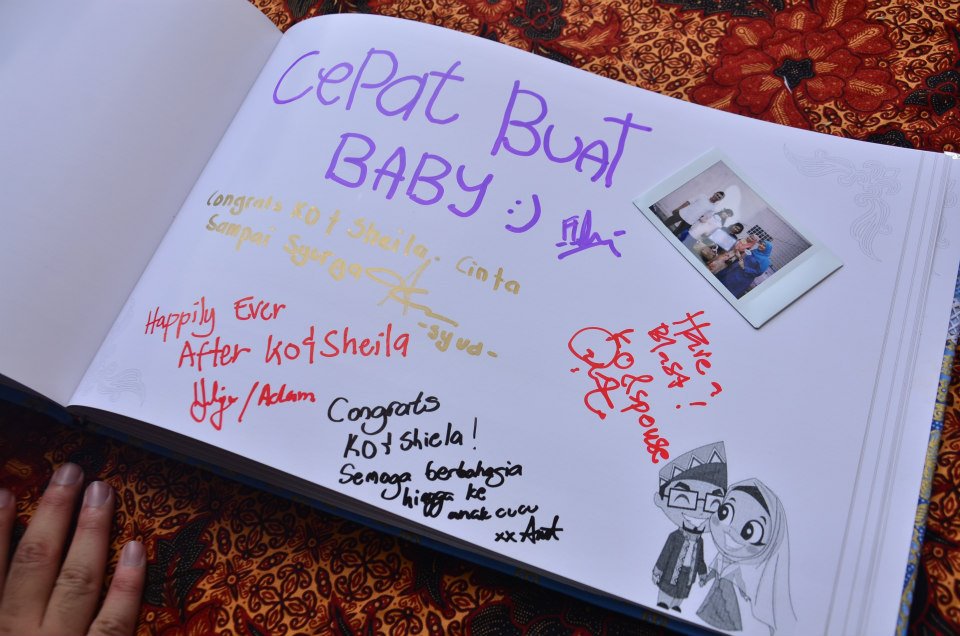 CePat BUAT
BABY :)
Congrats KO & Sheila. Cinta
Sampai Syurga
-syud-
Happily Ever
After KO & Sheila
/Adam
Have a
Blast!
KO & spouse
Congrats
KO & Shiela!
Semoga berbahagia
hingga ke
anak cucu
xx